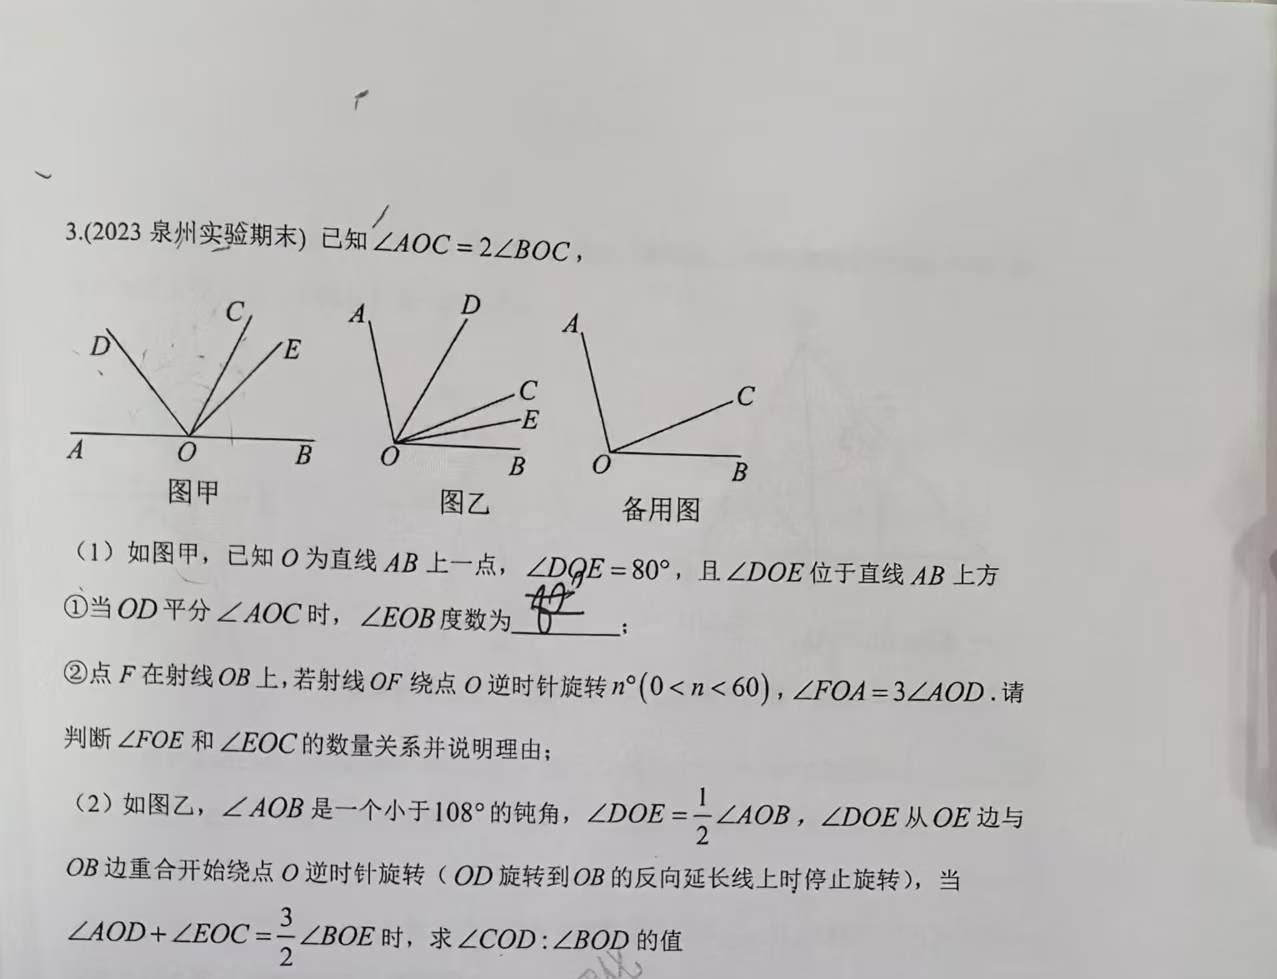 3.(2023 泉州实验期末) 已知∠AOC=2∠BOC,
D C E A O B
图甲
A D C E O B
图乙
A C O B
备用图
（1）如图甲，已知 O 为直线 AB 上一点，∠DOE=80°，且∠DOE 位于直线 AB 上方
①当 OD 平分∠AOC 时，∠EOB 度数为______；
②点 F 在射线 OB 上,若射线 OF 绕点 O 逆时针旋转 n°(0<n<60)，∠FOA=3∠AOD.请
判断∠FOE 和∠EOC 的数量关系并说明理由；
（2）如图乙，∠AOB 是一个小于108°的钝角，∠DOE=1/2∠AOB，∠DOE 从 OE 边与
OB 边重合开始绕点 O 逆时针旋转（OD 旋转到 OB 的反向延长线上时停止旋转），当
∠AOD+∠EOC=3/2∠BOE 时，求∠COD:∠BOD 的值